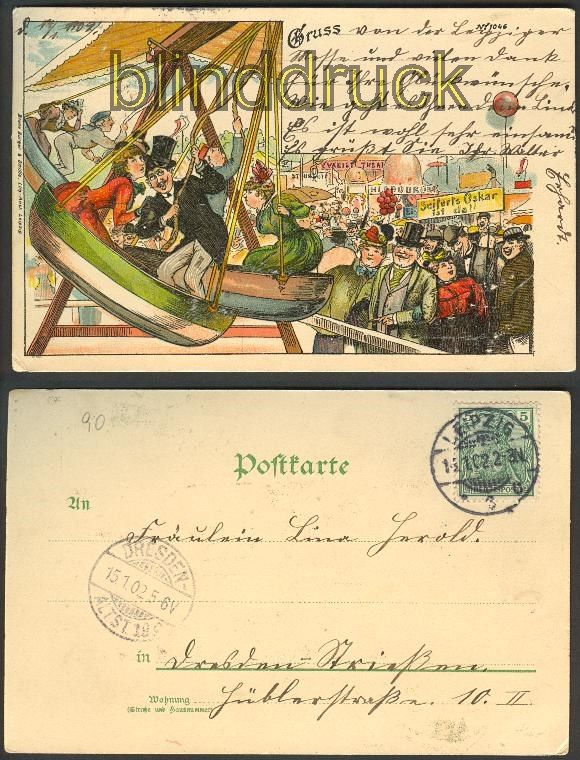 Gruss von der Leipziger
No 1046
Messe und vielen Dank
für Ihre Glückwünsche.
Es ist wohl sehr einsam
Es grüßt Sie Ihr Walter
Erhardt.
blinddruck
VARIETÉ THEATER
HIPPODROM
Seiferts Oskar
ist da!!
90
Postkarte
LEIPZIG
3
5
An
Fräulein Lina Herold.
DRESDEN-
15.1.02.5-6V
ALTST.19
in Dresden-Strießen.
Wohnung Hüblerstraße. 10. II
(Straße und Hausnummer)